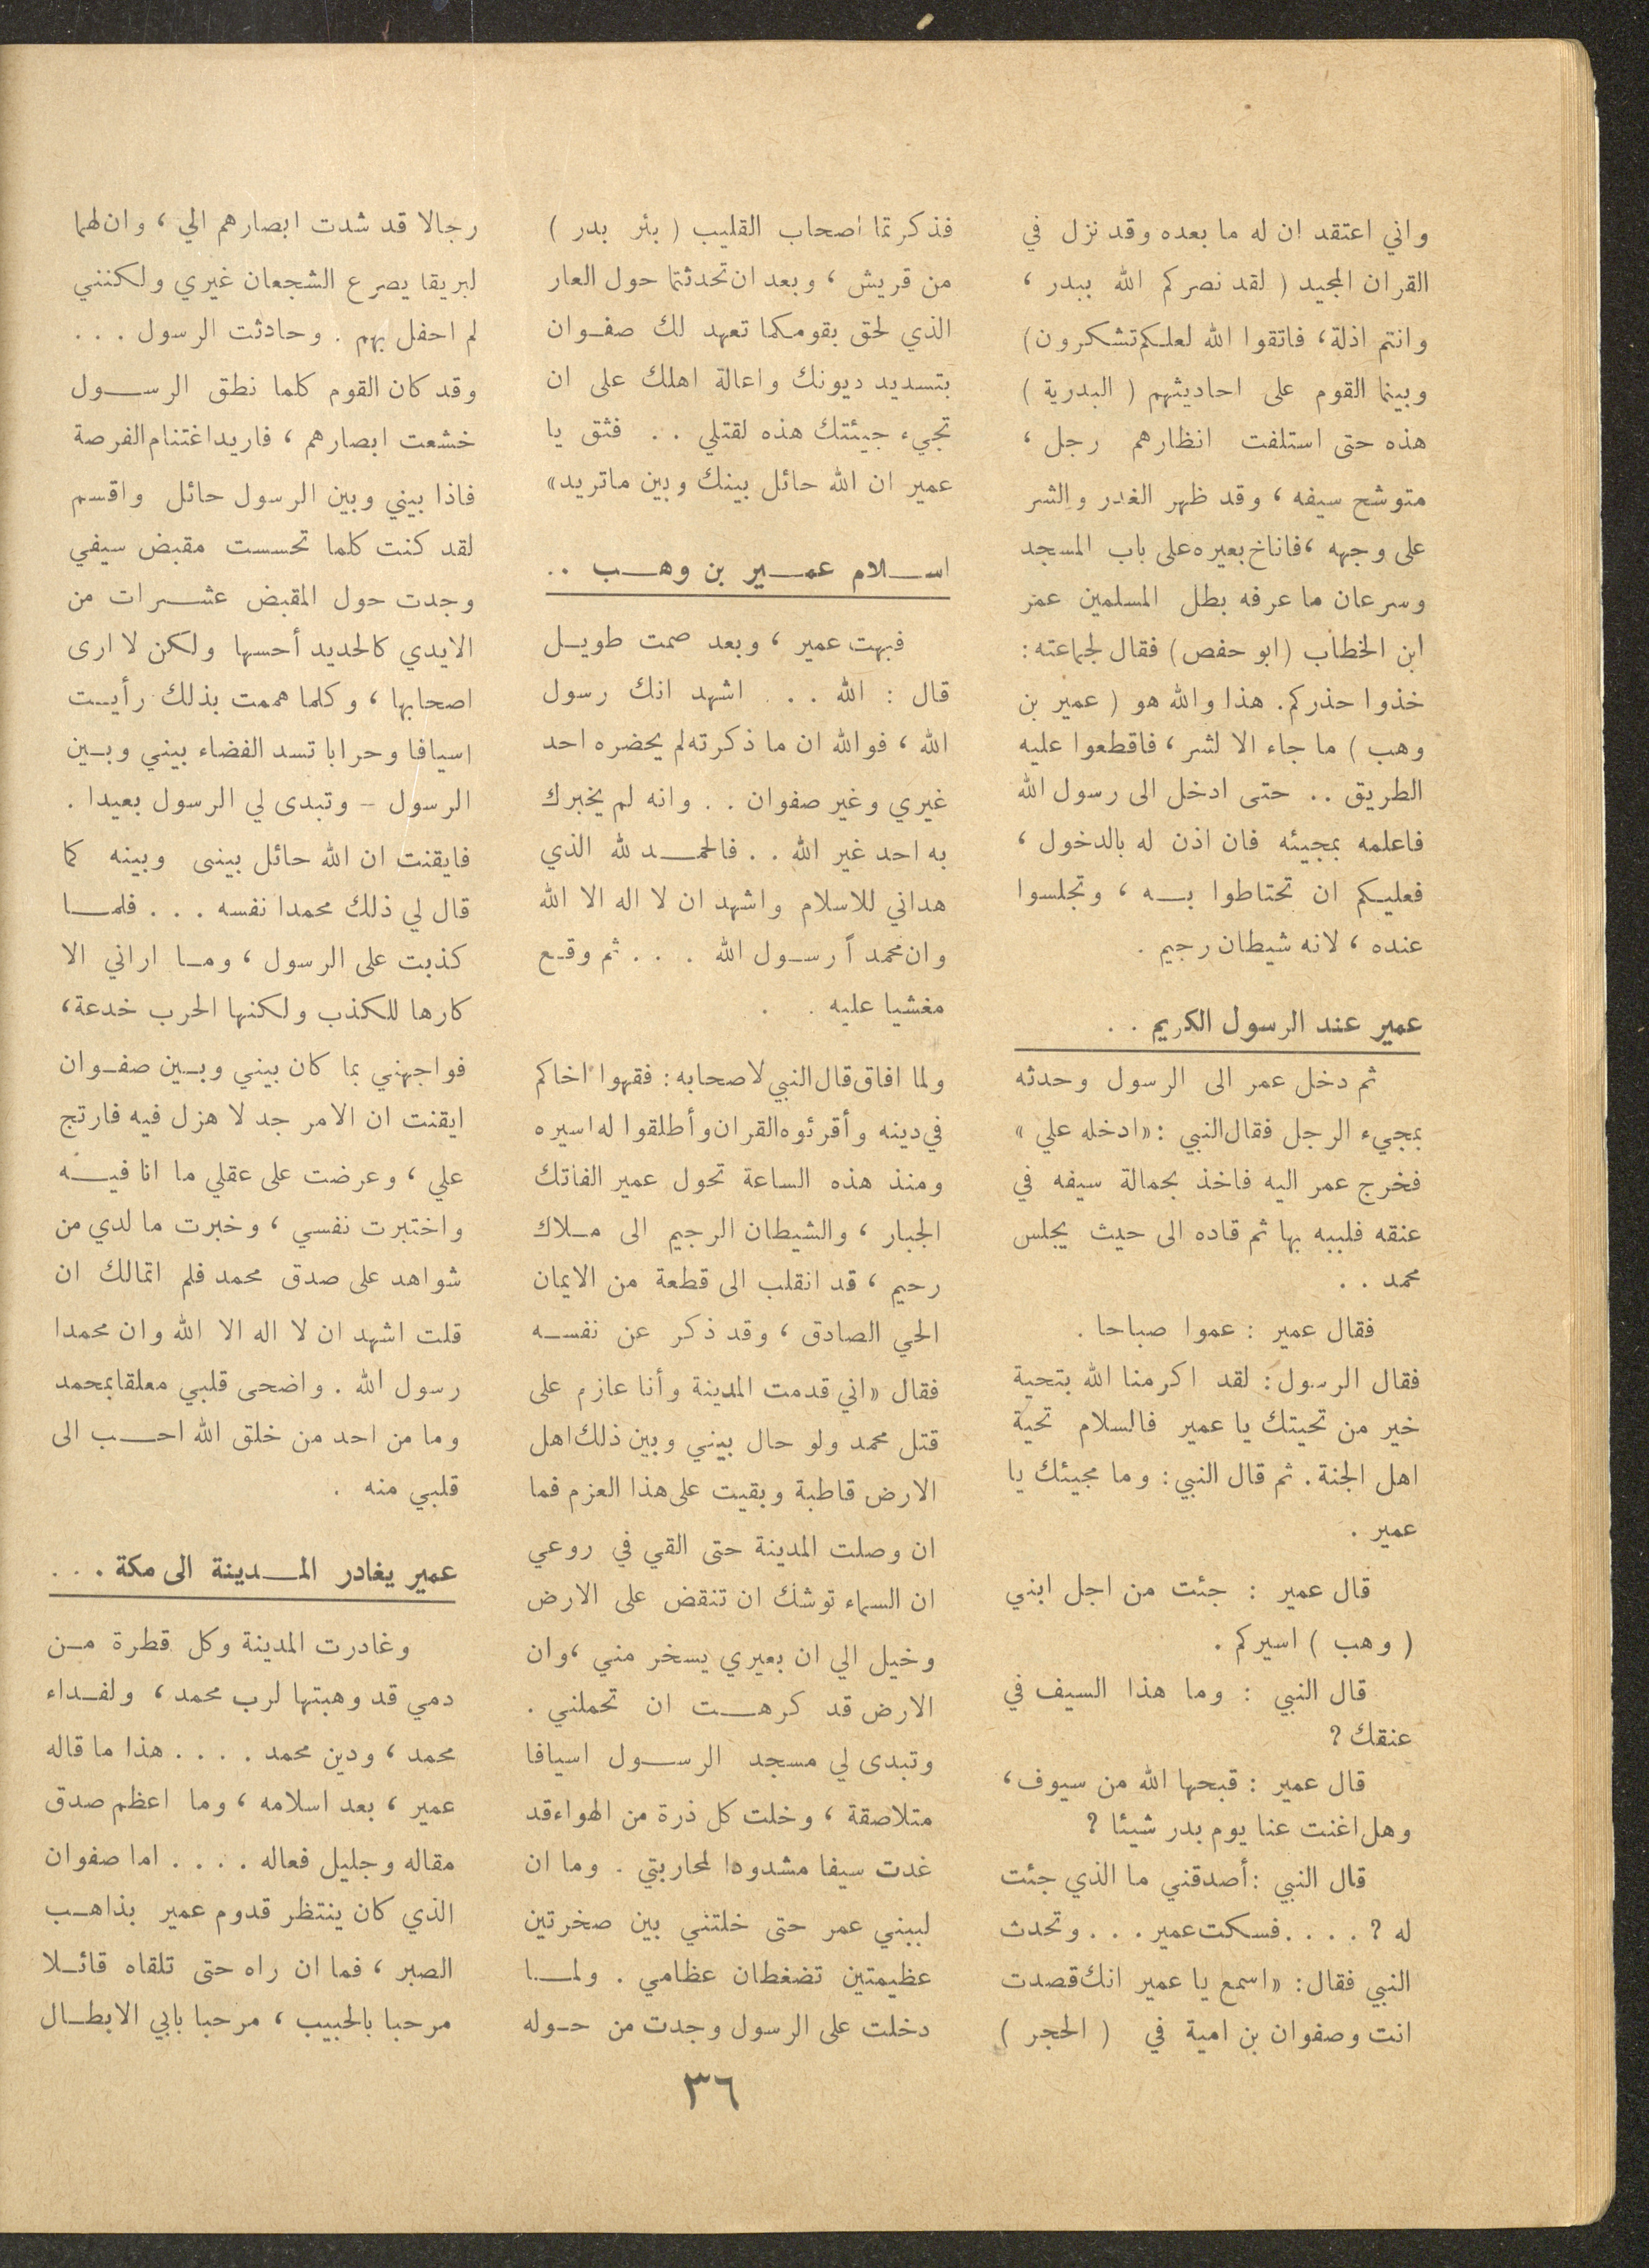 واني اعتقد ان له ما بعده وقد نزل في
القران المجيد ( لقد نصركم الله ببدر ،
وانتم اذلة، فاتقوا الله لعلكم تشكرون)
وبينما القوم على احاديثهم ( البدرية )
هذه حتى استلفت انظارهم رجل ،
متوشح سيفه ، وقد ظهر الغدر والشر
على وجهه ،فاناخ بعيره على باب المسجد
وسرعان ما عرفه بطل المسلمين عمر
ابن الخطاب (ابو حفص) فقال لجماعته :
خذوا حذركم. هذا والله هو ( عمير بن
وهب ) ما جاء الا لشر ، فاقطعوا عليه
الطريق .. حتى ادخل الى رسول الله
فاعلمه بمجيئه فان اذن له بالدخول ،
فعليكم ان تحتاطوا بـه ، وتجلسوا
عنده ، لانه شيطان رجيم .
عمير عند الرسول الكريم . .
ثم دخل عمر الى الرسول وحدثه
بمجيء الرجل فقال النبي : «ادخله علي »
فخرج عمر اليه فاخذ بحمالة سيفه في
عنقه فلببه بها ثم قاده الى حيث يجلس
محمد . .
فقال عمير : عموا صباحا .
فقال الرسول : لقد اكرمنا الله بتحية
خير من تحيتك يا عمير فالسلام تحية
اهل الجنة . ثم قال النبي : وما مجيئك يا
عمير .
قال عمير : جئت من اجل ابني
( وهب ) اسيركم .
قال النبي : وما هذا السيف في
عنقك ؟
قال عمير : قبحها الله من سيوف ،
وهل اغنت عنا يوم بدر شيئا ؟
قال النبي : أصدقني ما الذي جئت
له ؟ . . . . فسكت عمير . . . وتحدث
النبي فقال : «اسمع يا عمير انك قصدت
انت وصفوان بن امية في ( الحجر )
فذكرتما اصحاب القليب ( بئر بدر )
من قريش ، وبعد ان تحدثتما حول العار
الذي لحق بقومكما تعهد لك صفوان
بتسديد ديونك واعالة اهلك على ان
تجيء جيئتك هذه لقتلي . . فثق يا
عمير ان الله حائل بينك وبين ماتريد»
اسـلام عمـير بن وهـب ..
فبهت عمير ، وبعد صمت طويـل
قال : الله . . اشهد انك رسول
الله ، فوالله ان ما ذكرته لم يحضره احد
غيري وغير صفوان . . وانه لم يخبرك
به احد غير الله . . فالحمـد لله الذي
هداني للاسلام واشهد ان لا اله الا الله
وان محمد اً رسـول الله . . . ثم وقـع
مغشيا عليه .
ولما افاق قال النبي لاصحابه : فقهوا اخاكم
في دينه وأقرئوه القران وأطلقوا له اسيره
ومنذ هذه الساعة تحول عمير الفاتك
الجبار ، والشيطان الرجيم الى مـلاك
رحيم ، قد انقلب الى قطعة من الايمان
الحي الصادق ، وقد ذكر عن نفسـه
فقال «اني قدمت المدينة وأنا عازم على
قتل محمد ولو حال بيني وبين ذلك اهل
الارض قاطبة وبقيت على هذا العزم فما
ان وصلت المدينة حتى القي في روعي
ان السماء توشك ان تنقض على الارض
وخيل الي ان بعيري يسخر مني ،وان
الارض قد كرهـت ان تحملني .
وتبدى لي مسجد الرسـول اسيافا
متلاصقة ، وخلت كل ذرة من الهواء قد
غدت سيفا مشدودا لمحاربتي . وما ان
لببني عمر حتى خلتني بين صخرتين
عظيمتين تضغطان عظامي . ولمـا
دخلت على الرسول وجدت من حـوله
رجالا قد شدت ابصارهم الي ، وان لهما
لبريقا يصرع الشجعان غيري ولكنني
لم احفل بهم . وحادثت الرسول . . .
وقد كان القوم كلما نطق الرسـول
خشعت ابصارهم ، فاريد اغتنام الفرصة
فاذا بيني وبين الرسول حائل واقسم
لقد كنت كلما تحسست مقبض سيفي
وجدت حول المقبض عشـرات من
الايدي كالحديد أحسها ولكن لا ارى
اصحابها ، وكلما هممت بذلك رأيـت
اسيافا وحرابا تسد الفضاء بيني وبـين
الرسول – وتبدى لي الرسول بعيدا .
فايقنت ان الله حائل بينى وبينه كما
قال لي ذلك محمدا نفسه . . . فلمـا
كذبت على الرسول ، ومـا اراني الا
كارها للكذب ولكنها الحرب خدعة ،
فواجهني بما كان بيني وبـين صفـوان
ايقنت ان الامر جد لا هزل فيه فارتج
علي ، وعرضت على عقلي ما انا فيـه
واختبرت نفسي ، وخبرت ما لدي من
شواهد على صدق محمد فلم اتمالك ان
قلت اشهد ان لا اله الا الله وان محمدا
رسول الله . واضحى قلبي معلقا بمحمد
وما من احد من خلق الله احـب الى
قلبي منه .
عمير يغادر المـدينة الى مكة . . .
وغادرت المدينة وكل قطرة مـن
دمي قد وهبتها لرب محمد ، ولفـداء
محمد ، ودين محمد . . . . هذا ما قاله
عمير ، بعد اسلامه ، وما اعظم صدق
مقاله وجليل فعاله . . . . اما صفوان
الذي كان ينتظر قدوم عمير بذاهـب
الصبر ، فما ان راه حتى تلقاه قائـلا
مرحبا بالحبيب ، مرحبا بابي الابطـال
٣٦